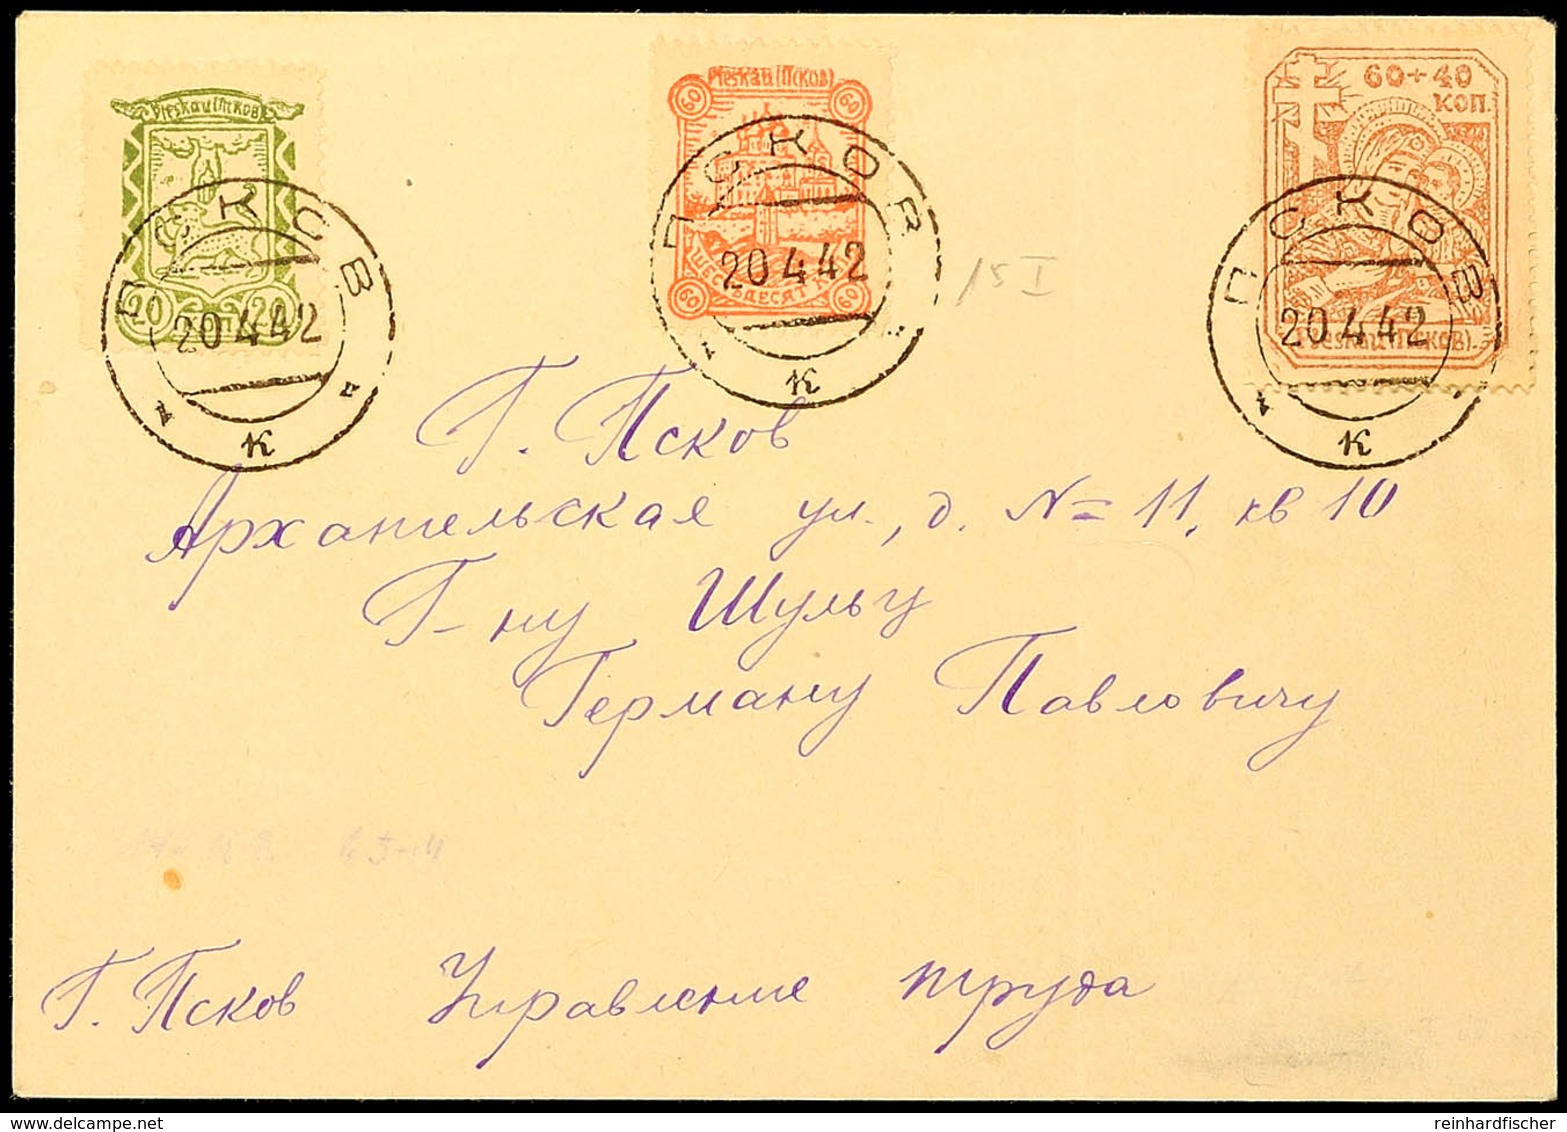 Pleskau (Псков)
20 20
КОП
Pleskau (Псков)
60 60
ШЕСТЬДЕСЯТ КОП
60 60
60+40
КОП.
Pleskau (Псков).
ПСКОВ
20 4 42
1 К
ПСКОВ
20 4 42
1 К
ПСКОВ
20 4 42
1 К
15 I
Г. Псков
Архангельская ул., д. №=11, кв 10
Г-ну Шульц
Герману Павловичу
Г. Псков Управление труда
reinhardfischer